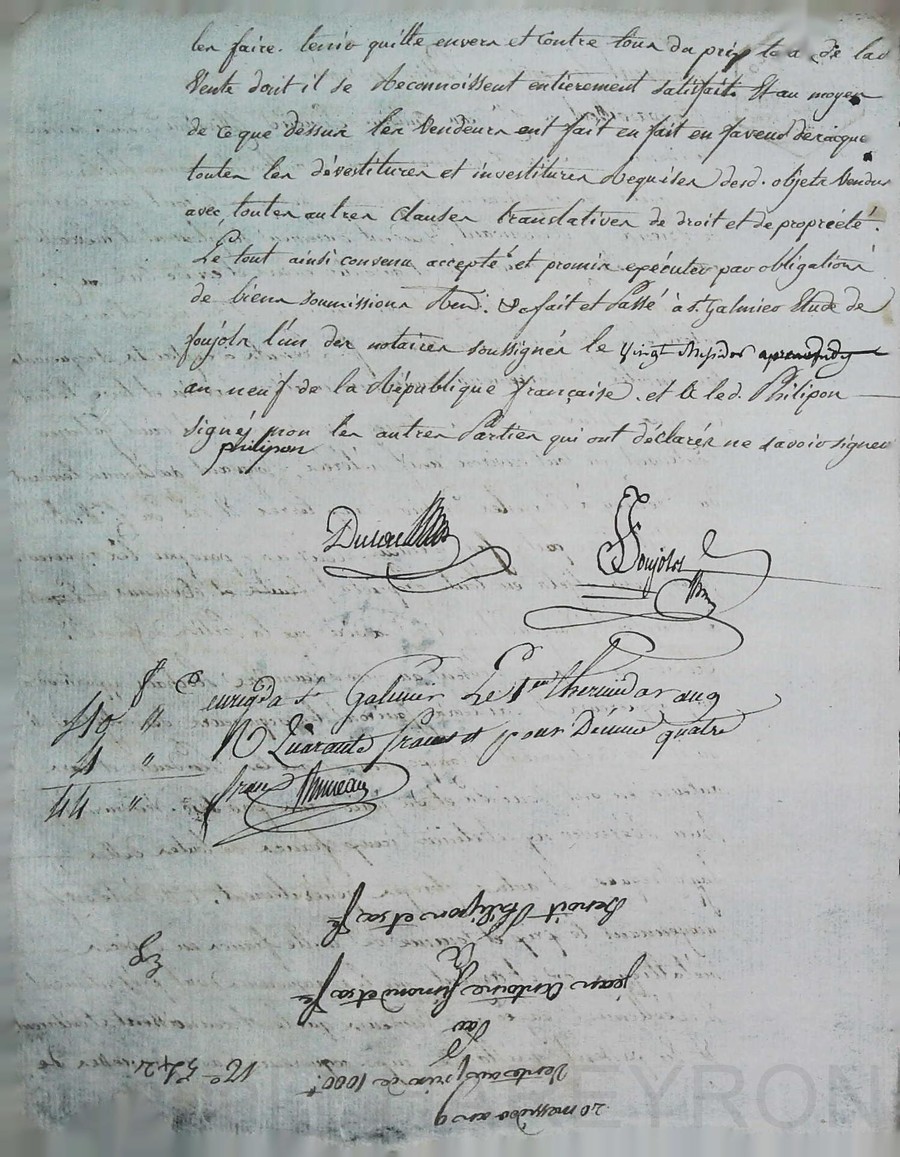 les faire. tenir quitte envers et contre tous du prix de lad
Vente dont il se Reconnoissent entièrement satisfait. Et au moyen
de ce que dessus les Vendeurs ont fait en fait en faveur
toutes les dévestitures et investitures Requises desd. objets Vendus
avec toutes autres clauses translatives de droit et de propriété.
Le tout ainsi convenu accepté et promis exécuter par obligations
de biens soumissions Ren. fait et Passé à St. Galmier Etude de
Soujols l'un des notaires soussignés le Vingt Messidor
an neuf de la République française. et le led. Philipon
signé, non les autres Parties qui ont déclarés ne savoir signer
philipon
Soujols
f
40 "
4 "
44 "
enrig à St Galmier Le 1er thermidor an 9
R Quarante francs et pour Décime quatre
francs
20 messidor an 9
Vente au prix de 1000f
No 542
Par
jean Antoine Simond et sa fe
à
Benoit Philipon et sa fe
EYRON